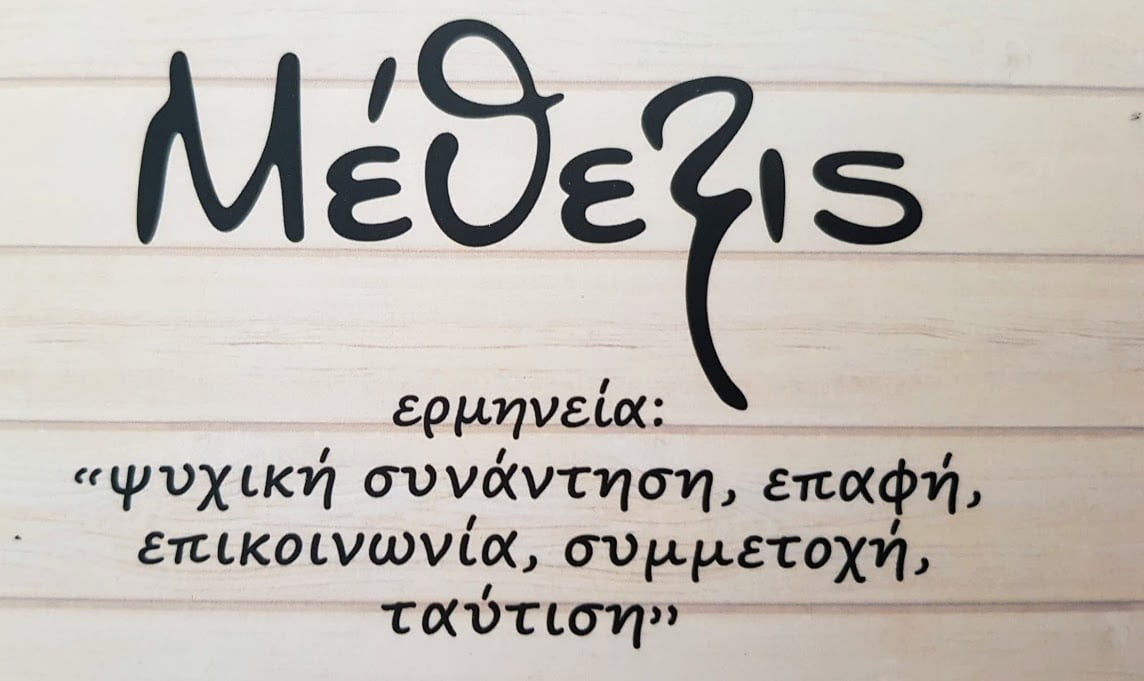 Μέθεξις
ερμηνεία:
“ψυχική συνάντηση, επαφή,
επικοινωνία, συμμετοχή,
ταύτιση”